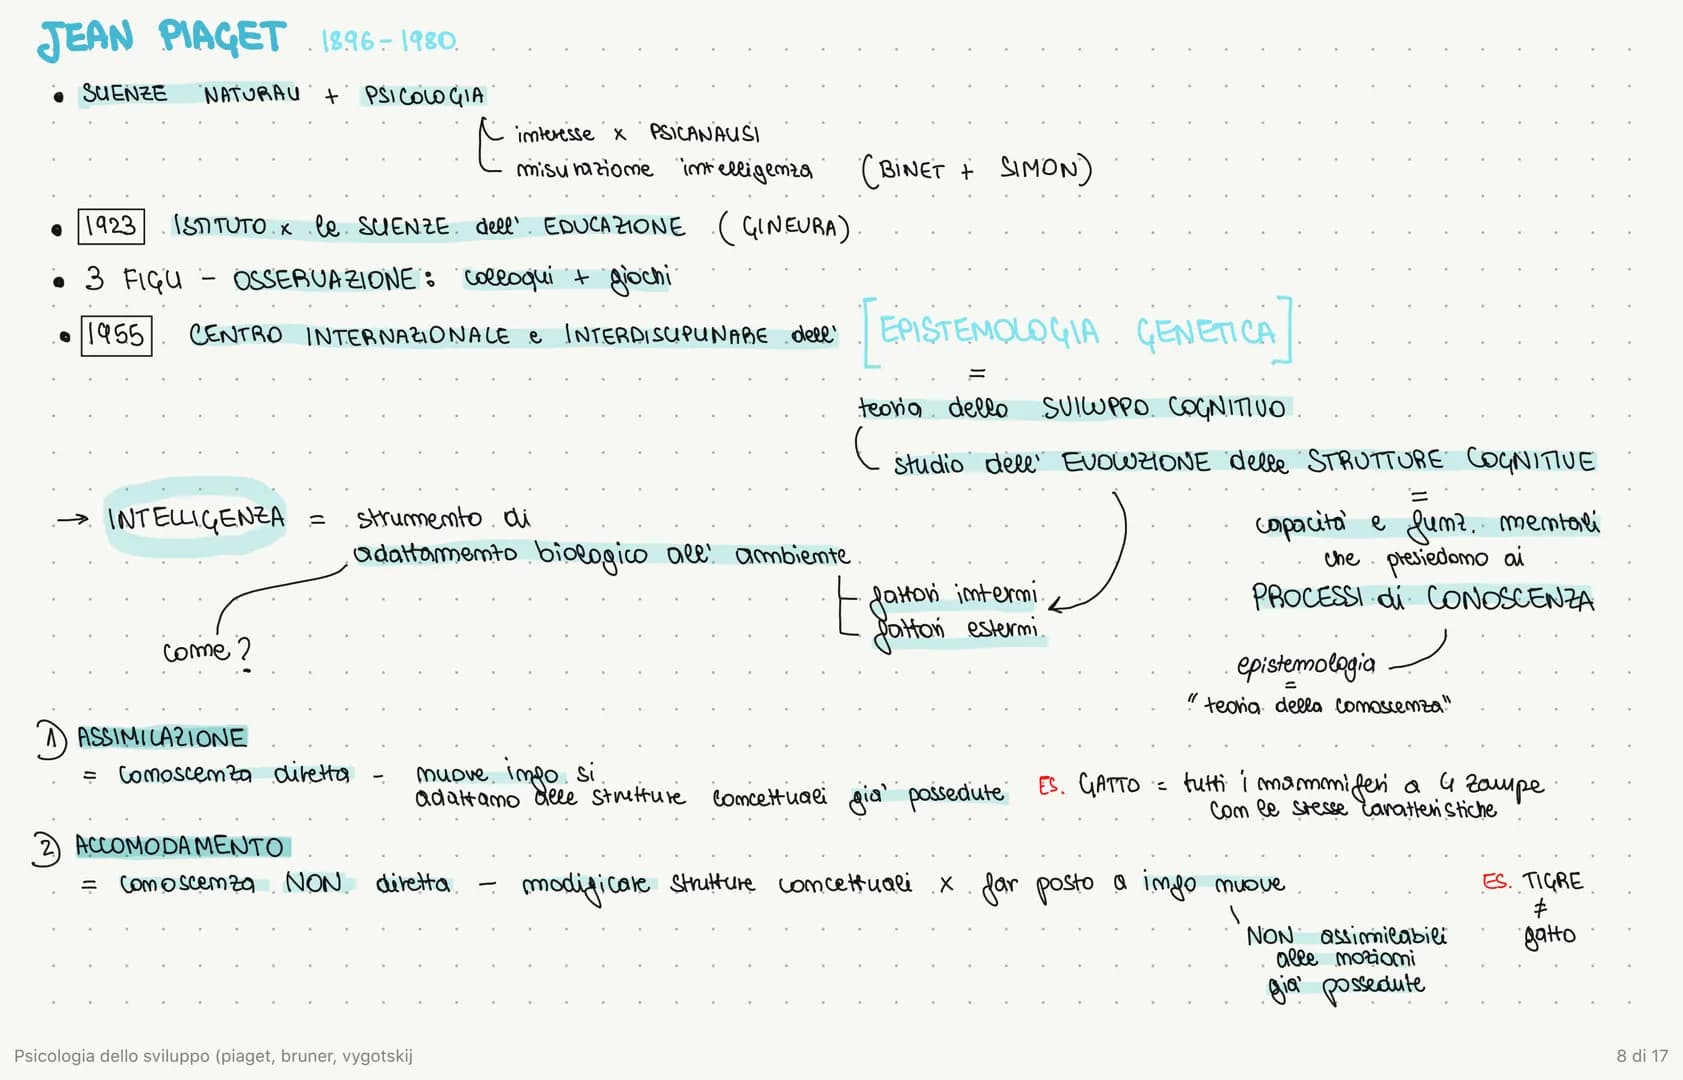 JEAN PIAGET 1896-1980
• SCIENZE NATURALI + PSICOLOGIA
interesse x PSICANALISI
misurazione intelligenza (BINET + SIMON)
• 1923 ISTITUTO x le SCIENZE dell' EDUCAZIONE (GINEVRA)
• 3 FIGLI - OSSERVAZIONE: colloqui + giochi
• 1955 CENTRO INTERNAZIONALE e INTERDISCIPLINARE dell' [EPISTEMOLOGIA GENETICA]
=
teoria dello SVILUPPO COGNITIVO
studio dell' EVOLUZIONE delle STRUTTURE COGNITIVE
=
capacità e funz. mentali
che presiedono ai
PROCESSI di CONOSCENZA
epistemologia
=
"teoria della conoscenza"
→ INTELLIGENZA = strumento di
adattamento biologico all' ambiente
fattori interni
fattori esterni
come?
1) ASSIMILAZIONE
= conoscenza diretta - nuove info si
adattano alle strutture concettuali già possedute
ES. GATTO = tutti i mammiferi a 4 zampe
con le stesse caratteristiche
2) ACCOMODAMENTO
= conoscenza NON diretta - modificare strutture concettuali x far posto a info nuove
NON assimilabili
alle nozioni
già possedute
ES. TIGRE
≠
gatto
Psicologia dello sviluppo (piaget, bruner, vygotskij
8 di 17